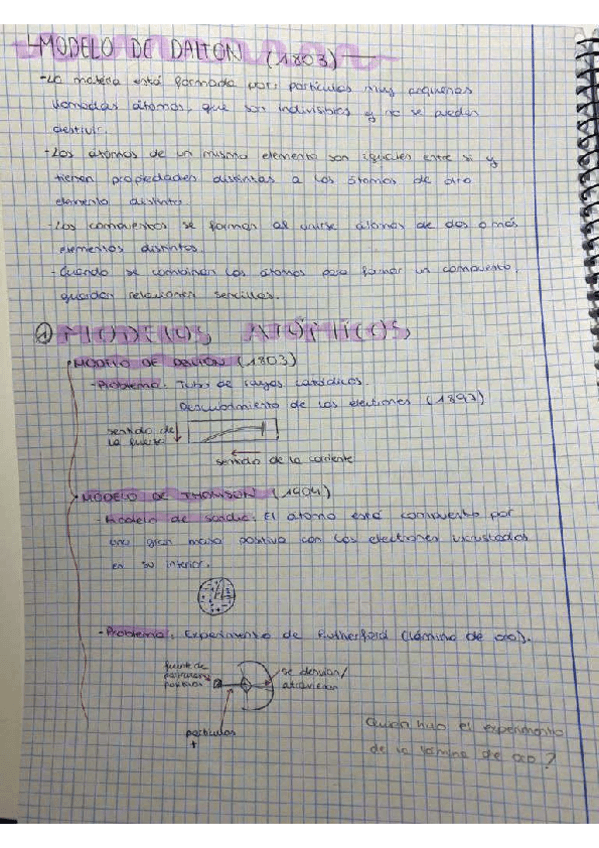 MODELO DE DALTON (1803)
-La materia está formada por partículas muy pequeñas
llamadas átomos, que son indivisibles y no se pueden
destruir.
-Los átomos de un mismo elemento son iguales entre si y
tienen propiedades distintas a los átomos de otro
elemento distinto.
-Los compuestos se forman al unirse átomos de dos o más
elementos distintos.
-Cuando se combinan los átomos para formar un compuesto,
guardan relaciones sencillas.
① MODELOS ATÓMICOS
MODELO DE DALTON (1803)
-Problema: Tubo de rayos catódicos.
Descubrimiento de los electrones (1897)
sentido de
la fuerza
sentido de la corriente
MODELO DE THOMSON (1904)
-Modelo de sandía: El átomo está compuesto por
una gran masa positiva con los electrones incrustados
en su interior.
-Problema: Experimento de Rutherford (lámina de oro).
fuente de
se desvían/
atraviesan
partículas
+
Quien hizo el experimento
de la lámina de oro?